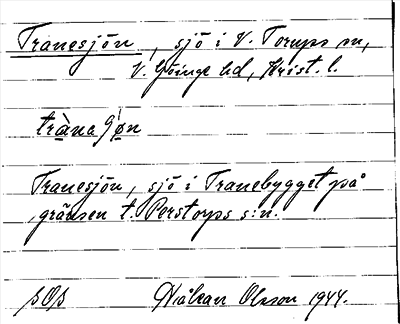 Tranesjön, sjö i V. Torups sn,
V. Göinge hd, Krist. l.
tràna ʃø̀n
Tranesjön, sjö i Tranebygget på
gränsen t. Perstorps s:n.
Håkan Olsson 1944.